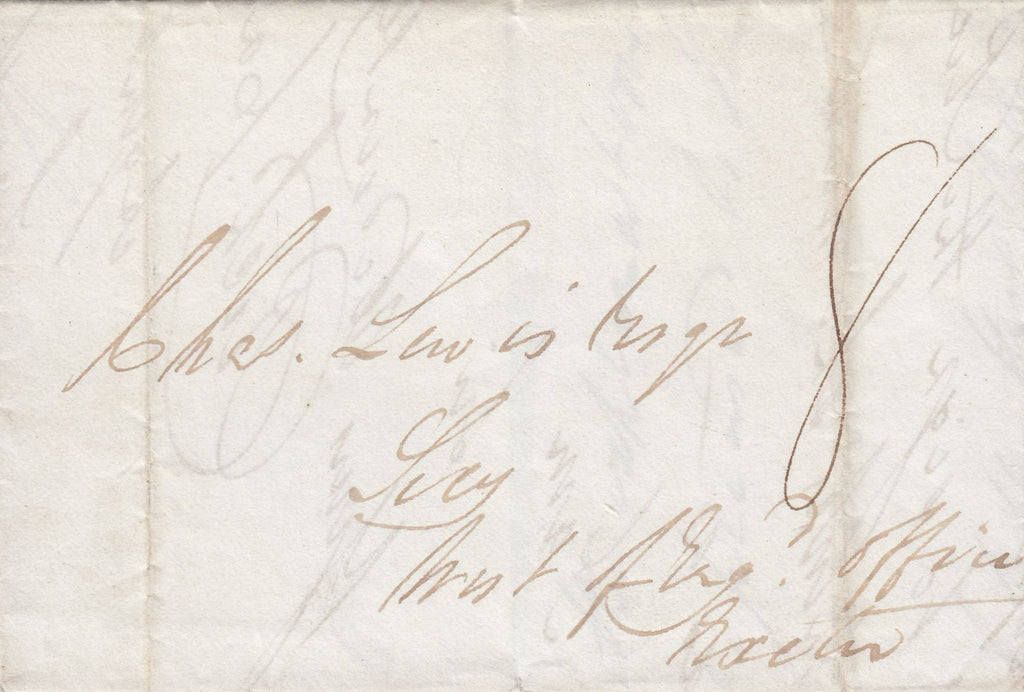 8
Chas. Lewis Esqr
Secy
West of Eng.d office
Exeter